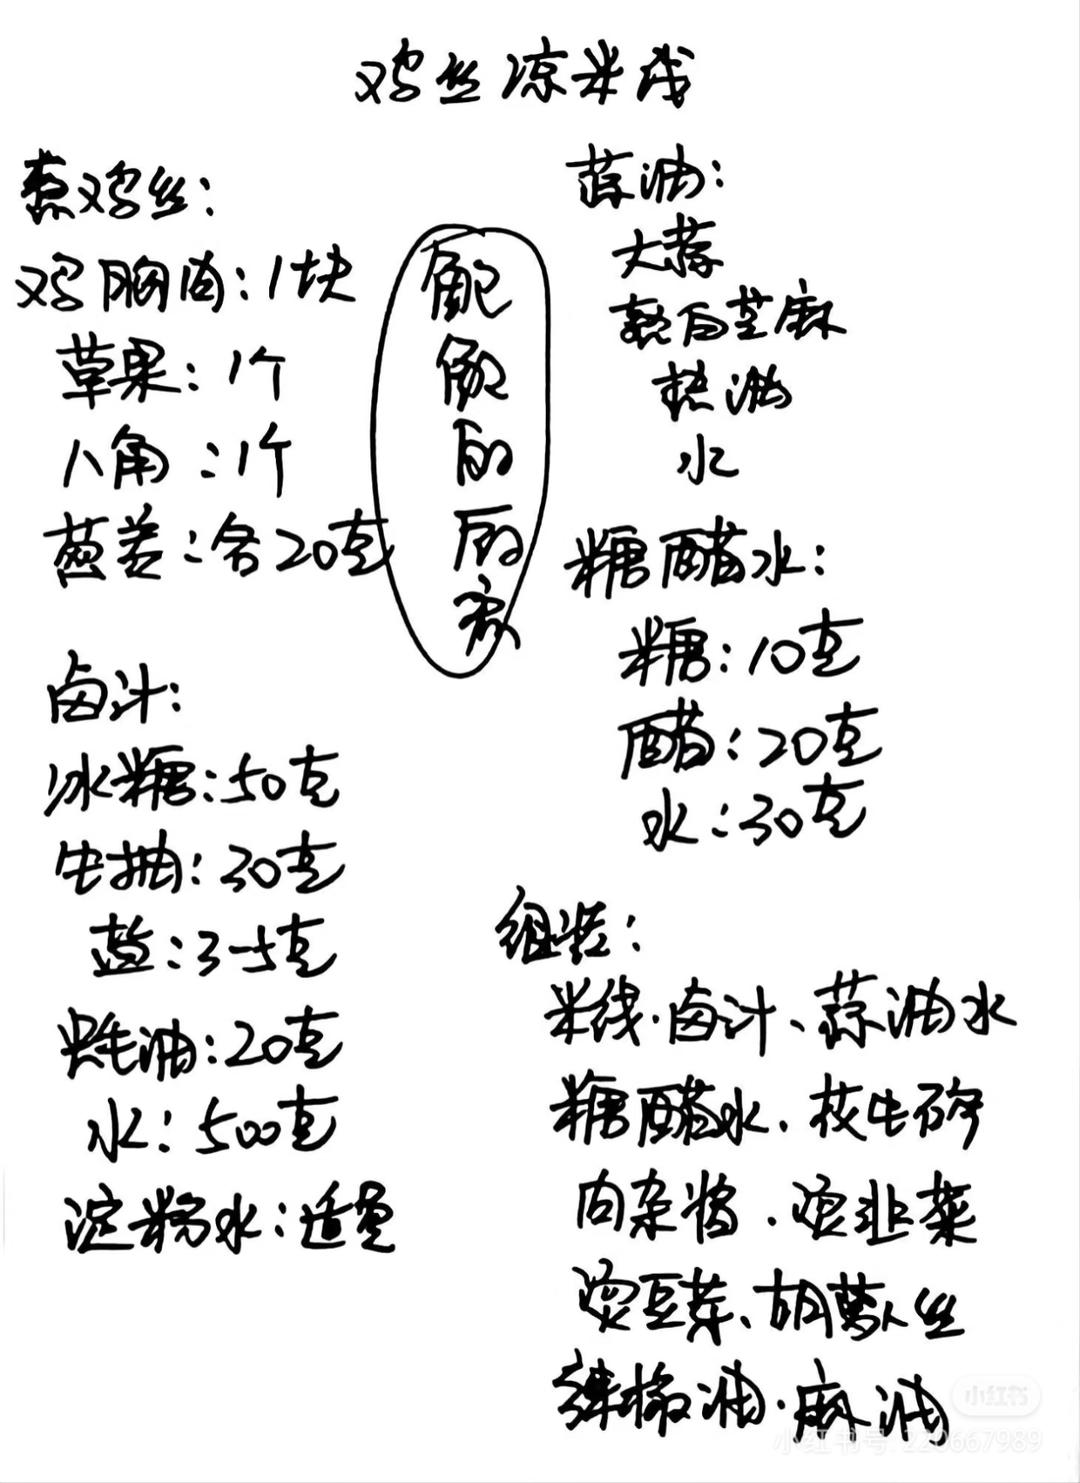 鸡丝凉米线
煮鸡丝:
鸡胸肉:1块
草果:1个
八角:1个
葱姜:各20克
卤汁:
冰糖:50克
生抽:30克
盐:3-5克
蚝油:20克
水:500克
淀粉水:适量
的
蒜油:
大蒜
熟白芝麻
热油
水
糖醋水:
糖:10克
醋:20克
水:30克
组装:
米线、卤汁、蒜油水
糖醋水、花生碎
肉杂酱、烫韭菜
烫豆芽、胡萝卜丝
辣椒油、麻油
小红书
小红书号:220667989